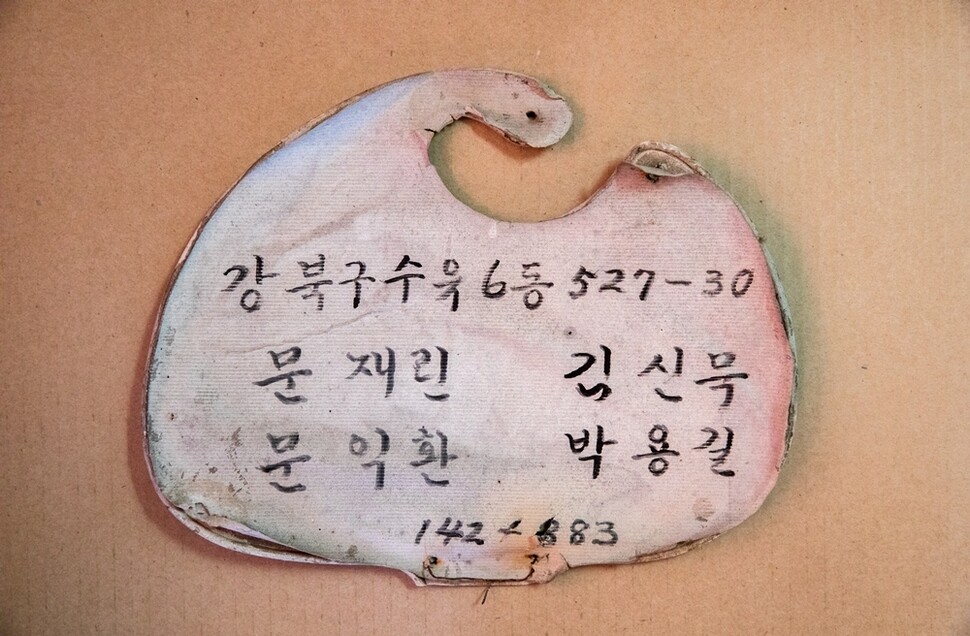 강북구수육6동 527-30
문재린 김신묵
문익환 박용길
142-883